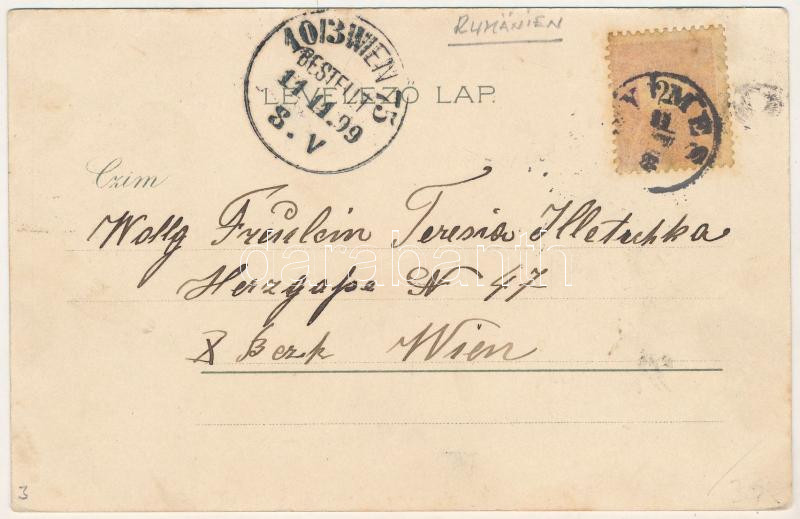 RUMÄNIEN
10/3 WIEN 75
BESTELLT
11.11.99
8. V
LEVELEZŐ LAP.
YMES
Czim
Wollg Fräulein Teresia Illetschka
Herzgaße N 47
X Bezk Wien
darabanth
3